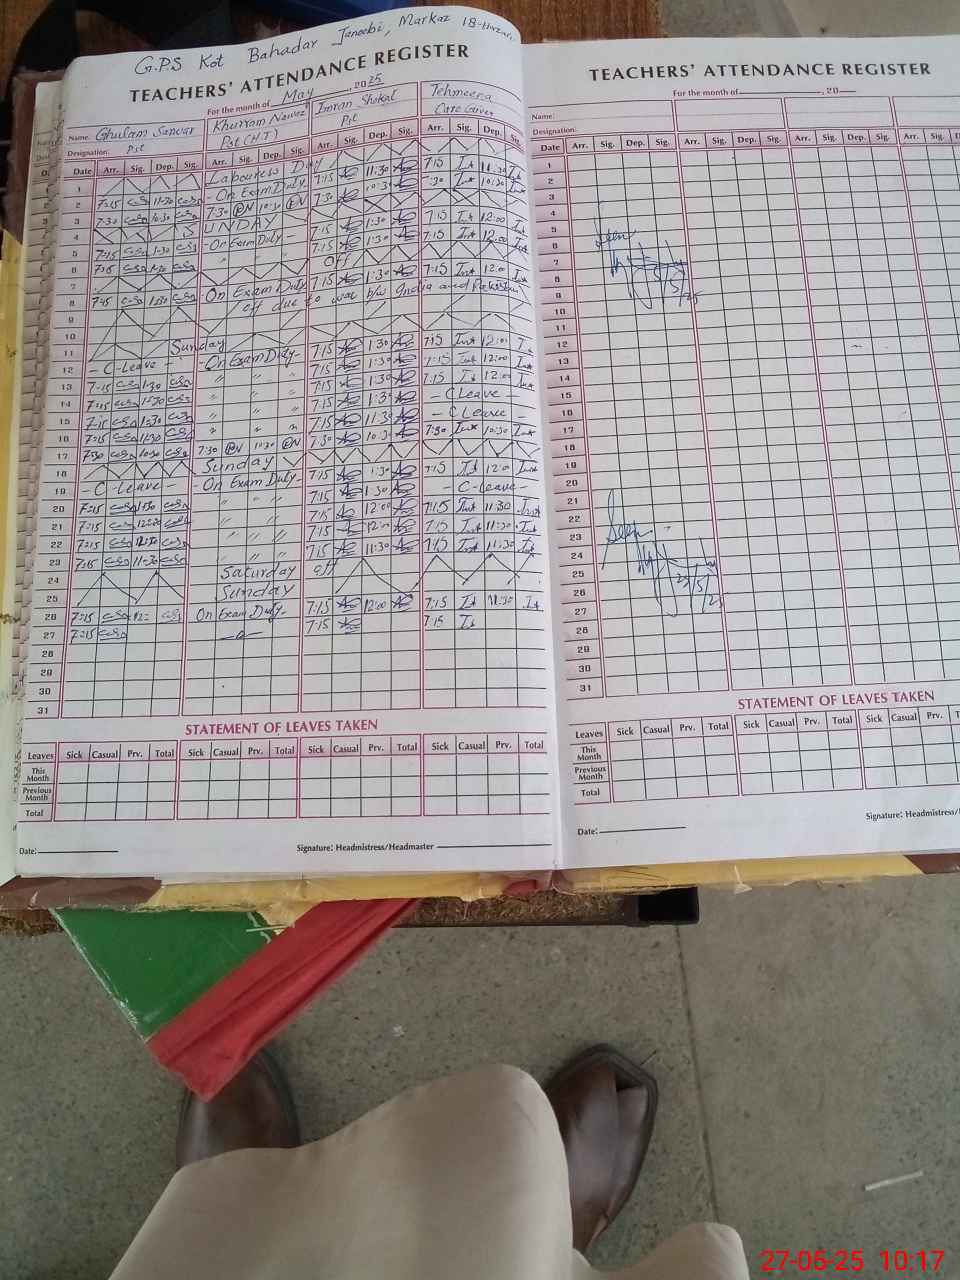 G.P.S Kot Bahadar Janoobi, Markaz 18-Hazari
TEACHERS' ATTENDANCE REGISTER
For the month of May, 2025
Name: Ghulam Sarwar Khurram Nawaz Imran Shokat Tehmeena
Designation: Pst Pst (H.T) Pst Care Giver
Date Arr. Sig. Dep. Sig. Arr. Sig. Dep. Sig. Arr. Sig. Dep. Sig. Arr. Sig. Dep. Sig.
1 Labouress Day
2 7:15 11:30 - On Exam Duty - 7:15 11:30 7:15 11:30
3 7:30 10:30 7:30 10:30 7:30 10:30 7:30 10:30
4 SUNDAY
5 7:15 1:30 - On Exam Duty - 7:15 1:30 7:15 12:00
6 7:15 1:30 " " " 7:15 1:30 7:15 12:00
7 Off
8 7:15 1:30 - On Exam Duty 7:15 1:30 7:15 12:00
9 off due to war b/w India and Pakistan
10
11 Sunday
12 - C-Leave - - On Exam Duty - 7:15 1:30 7:15 12:00
13 7:15 1:30 " " " 7:15 1:30 7:15 12:00
14 7:15 1:30 " " " 7:15 1:30 7:15 12:00
15 7:15 1:30 " " " 7:15 1:30 - C Leave -
16 7:15 11:30 " " " 7:15 11:30 - C Leave -
17 7:30 10:30 7:30 10:30 7:30 10:30 7:30 10:30
18 Sunday
19 - C-Leave - - On Exam Duty - 7:15 1:30 7:15 12:00
20 7:15 1:30 " " " 7:15 1:30 - C-Leave -
21 7:15 12:00 " " " 7:15 12:00 7:15 11:30
22 7:15 " " " 7:15 12:00 7:15 11:30
23 7:15 11:30 " " " 7:15 11:30 7:15 11:30
24 Saturday off
25 Sunday
26 7:15 12: On Exam Duty - 7:15 12:00 7:15 11:30
27 7:15 7:15 7:15
28
29
30
31
STATEMENT OF LEAVES TAKEN
Leaves Sick Casual Prv. Total Sick Casual Prv. Total Sick Casual Prv. Total Sick Casual Prv. Total
This Month
Previous Month
Total
Date: Signature: Headmistress/Headmaster
TEACHERS' ATTENDANCE REGISTER
For the month of , 20
Name:
Designation:
Date Arr. Sig. Dep. Sig. Arr. Sig. Dep. Sig. Arr. Sig. Dep. Sig. Arr.
1
2
3
4
5
Seen
6
7
8
9
10
11
12
13
14
15
16
17
18
19
20
21
22
Seen
23
24
25
26
27
28
29
30
31
STATEMENT OF LEAVES TAKEN
Leaves Sick Casual Prv. Total Sick Casual Prv. Total Sick Casual Prv.
This Month
Previous Month
Total
Date: Signature: Headmistress/
27-05-25 10:17